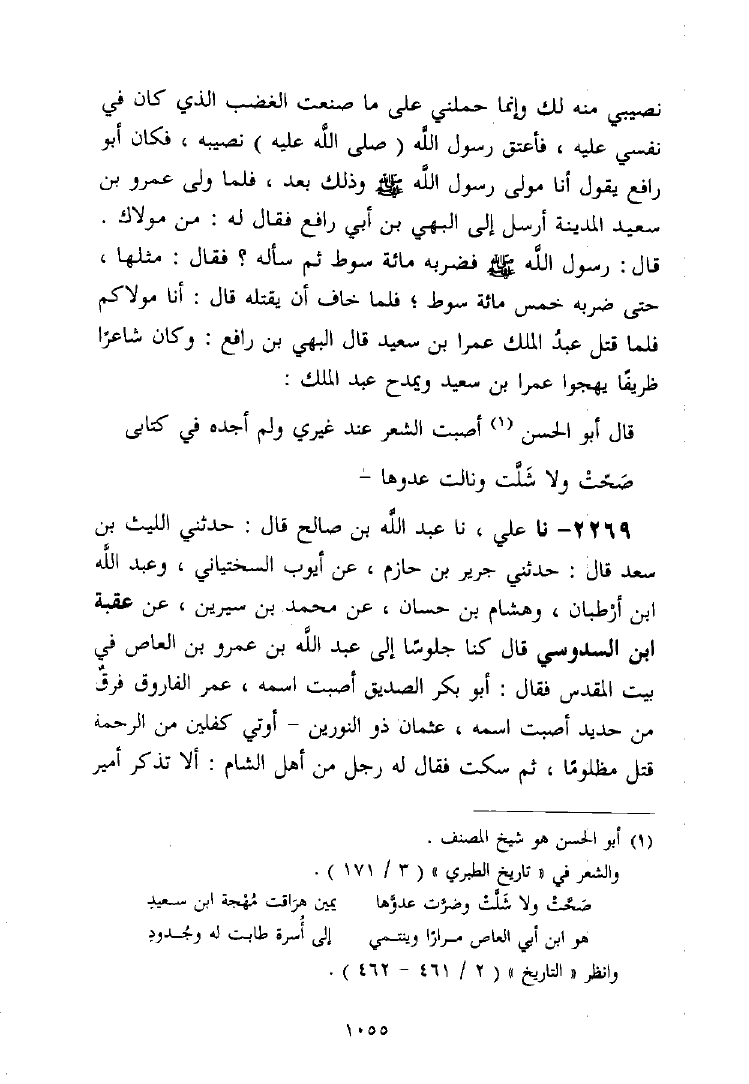 نصيبي منه لك وإنما حملني على ما صنعت الغضب الذي كان في
نفسي عليه ، فأعتق رسول اللَّه ( صلى اللَّه عليه ) نصيبه ، فكان أبو
رافع يقول أنا مولى رسول اللَّه ﷺ وذلك بعد ، فلما ولى عمرو بن
سعيد المدينة أرسل إلى البهي بن أبي رافع فقال له : من مولاك .
قال : رسول اللَّه ﷺ فضربه مائة سوط ثم سأله ؟ فقال : مثلها ،
حتى ضربه خمس مائة سوط ؛ فلما خاف أن يقتله قال : أنا مولاكم
فلما قتل عبدُ الملك عمرا بن سعيد قال البهي بن رافع : وكان شاعرًا
ظريفًا يهجوا عمرا بن سعيد ويمدح عبد الملك :
قال أبو الحسن (١) أصبت الشعر عند غيري ولم أجده في كتابى
صَحّتْ ولا شَلَّت ونالت عدوها –
٢٢٦٩– نا علي ، نا عبد اللَّه بن صالح قال : حدثني الليث بن
سعد قال : حدثني جرير بن حازم ، عن أيوب السختياني ، وعبد اللَّه
ابن أرْطبان ، وهشام بن حسان ، عن محمد بن سيرين ، عن عقبة
ابن السدوسي قال كنا جلوسًا إلى عبد اللَّه بن عمرو بن العاص في
بيت المقدس فقال : أبو بكر الصديق أصبت اسمه ، عمر الفاروق فرقٌ
من حديد أصبت اسمه ، عثمان ذو النورين – أوتي كفلين من الرحمة
قتل مظلومًا ، ثم سكت فقال له رجل من أهل الشام : ألا تذكر أمير
(١) أبو الحسن هو شيخ المصنف .
والشعر في « تاريخ الطبري » ( ٣ / ١٧١ ) .
صَحَّتْ ولا شَلَّتْ وضرَّت عدوَّها يمين هرَاقت مُهْجة ابن سعيدِ
هو ابن أبي العاص مرارًا وينتمي إلى أُسرة طابت له وجُدودِ
وانظر « التاريخ » ( ٢ / ٤٦١ – ٤٦٢ ) .
١٠٥٥